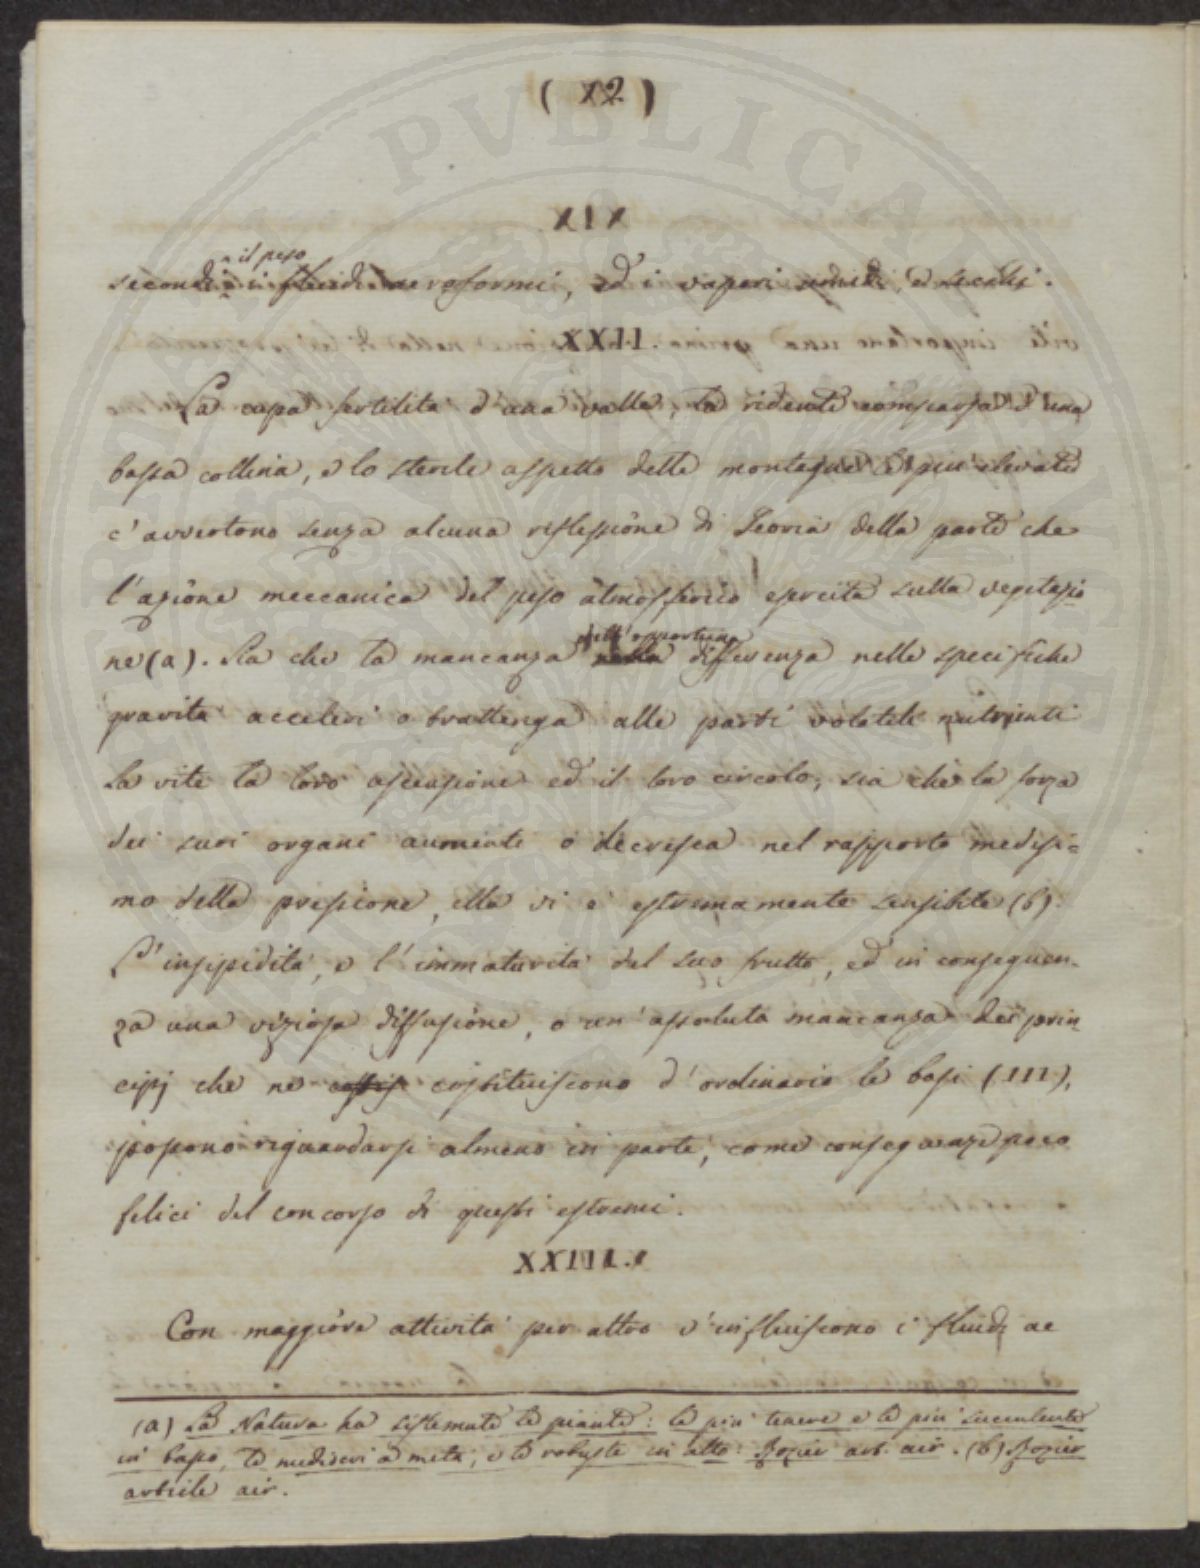 ( 12 )
XIX
il peso
secondi i fluidi aeroformi, ed i vapori umidi, e secchi.
XXII.
La cupa fertilità d'una valle, la ridente comparsa d'una
bassa collina, e lo sterile aspetto delle montagne le più elevate
c'avvertono senza alcuna riflessione di Teoria della parte che
l'azione meccanica del peso atmosferico esercita sulla vegetazio
ne (a). Sia che la mancanza
dell'opportuna
nella differenza nelle specifiche
gravità acceleri o trattenga alle parti volatili nutrienti
la vite la loro ascensione ed il loro circolo, sia che la forza
dei suoi organi aumenti o decresca nel rapporto medesi=
mo della pressione, ella vi è estremamente sensibile (b)
L'insipidità, e l'immaturità del suo frutto, ed in conseguen-
za una viziosa diffusione, o un'assoluta mancanza dei prin
cipj che ne costituiscono d'ordinario le basi (III),
possono riguardarsi almeno in parte, come conseguenze poco
felici del concorso di questi estremi.
XXIII.
Con maggiore attività per altro v'influiscono i fluidi ae
(a) La Natura ha sistemate le piante: le più tenere e le più succulente
in basso, le mediocri a metà, e le robuste in alto: Rozier art. air. (b) Rozier
article air.